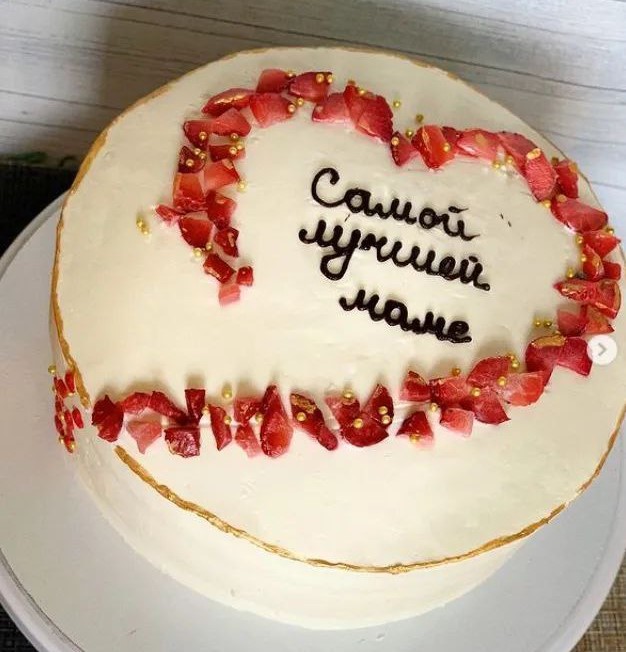 Самой
лучшей
маме